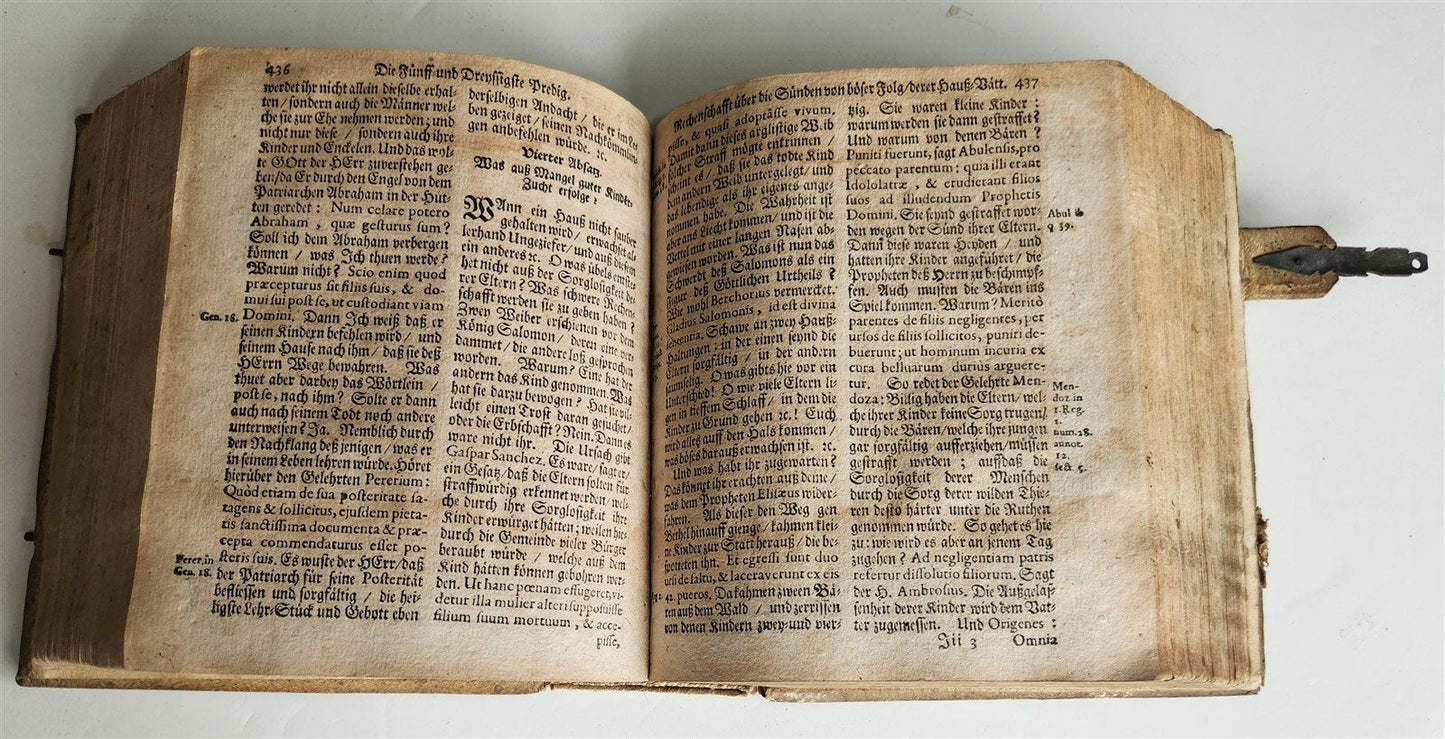 436
Die Fünff-und Dreyssigste Predig.
werdet ihr nicht allein dieselbe erhal-
ten / sondern auch die Männer wel-
che sie zur Ehe nehmen werden; und
nicht nur diese / sondern auch ihre
Kinder und Enckelen. Und das wol-
te GOtt der HErr zuverstehen ge-
ben / da Er durch den Engel von dem
Patriarchen Abraham in der Hut-
ten geredet: Num celare potero
Abraham, quæ gesturus sum?
Soll ich dem Abraham verbergen
können / was Ich thuen werde?
Warum nicht? Scio enim quod
præcepturus sit filiis suis, & do-
mui sui post se, ut custodiant viam
Gen. 18.
Domini. Dann Ich weiß daß er
seinen Kindern befehlen wird / und
seinem Hause nach ihm / daß sie deß
HErrn Wege bewahren. Was
thuet aber darbey das Wörtlein /
post se, nach ihm? Solte er dann
auch nach seinem Todt noch andere
unterweisen? Ja. Nemblich durch
den Nachklang deß jenigen / was er
in seinem Leben lehren würde. Höret
hierüber den Gelehrten Pererium:
Quòd etiam de sua posteritate sa-
tagens & sollicitus, ejusdem pieta-
tis sanctissima documenta & præ-
cepta commendaturus esset po-
Perer. in
Gen. 18.
steris suis. Es wuste der HErr / daß
der Patriarch für seine Posterität
beflissen und sorgfältig / die hei-
ligste Lehr-Stück und Gebott eben
derselbigen Andacht / die er im Le-
ben gezeiget / seinen Nachkömmlin-
gen anbefehlen würde. ꝛc.
Vierter Absatz.
Was auß Mangel guter Kinder-
Zucht erfolge?
WAnn ein Hauß nicht sauber
gehalten wird / erwachset al-
lerhand Ungeziefer / und auß diesem
ein anderes ꝛc. O was übels entste-
het nicht auß der Sorglosigkeit de-
rer Eltern? Was schwere Rechen-
schafft werden sie zu geben haben?
Zwey Weiber erschienen vor dem
König Salomon / deren eine ver-
dammet / die andere loß gesprochen
worden. Warum? Eine hat der
andern das Kind genommen. Was
hat sie darzu bewogen? Hat sie vil-
leicht einen Trost daran gesuchet /
oder die Erbschafft? Nein. Dann es
ware nicht ihr. Die Ursach gibt
Gaspar Sanchez. Es ware / sagt er /
ein Gesatz / daß die Eltern solten für
straffwürdig erkennet werden / wel-
che durch ihre Sorglosigkeit ihre
Kinder erwürget hätten; weilen hie-
durch die Gemeinde vieler Bürger
beraubt würde / welche auß dem
Kind hätten können gebohren wer-
den. Ut hanc pœnam effugeret, vi-
detur illa mulier alteri supposuisse
filium suum mortuum, & acce-
pisse,
Rechenschafft über die Sünden von böser Folg / derer Hauß-Vätt. 437
pisse, & quasi adoptasse vivum.
Damit dann dieses arglistige Weib
solcher Straff mögte entrinnen /
scheint es / daß sie das todte Kind
dem andern Weib untergelegt / und
das lebendige als ihr eigenes ange-
nommen habe. Die Wahrheit ist
aber ans Liecht kommen / und ist die
Vettel mit einer langen Nasen ab-
gewiesen worden. Was ist nun das
Schwerdt deß Salomons als ein
Figur deß Göttlichen Urtheils?
Wie wohl Berchorius vermercket.
Gladius Salomonis, id est divina
sententia. Schawe an zwey Hauß-
Haltungen: in der einen seynd die
Eltern sorgfältig / in der andern
saumselig. O was gibts hie vor ein
Unterschied! O wie viele Eltern li-
gen in tieffem Schlaff / in dem die
Kinder zu Grund gehen ꝛc.! Euch
wird alles auff den Hals kommen /
was böses darauß erwachsen ist. ꝛc.
Und was habt ihr zugewarten?
Das könnt ihr erachten auß deme /
was dem Propheten Elisæus wider-
fahren. Als dieser den Weg gen
Bethel hinauff gienge / kahmen klei-
ne Kinder zur Statt herauß / die be-
spotteten ihn. Et egressi sunt duo
ursi de saltu, & laceraverunt ex eis
42. pueros. Da kahmen zween Bä-
ren auß dem Wald / und zerrissen
von denen Kindern zwey-und vier-
tzig. Sie waren kleine Kinder:
warum werden sie dann gestraffet?
Und warum von denen Bären?
Puniti fuerunt, sagt Abulensis, pro
peccato parentum: quia illi erant
Idololatræ, & erudierant filios
suos ad illudendum Prophetis
Domini. Sie seynd gestraffet wor-
den wegen der Sünd ihrer Eltern.
Abul. ib.
q. 39.
Dann diese waren Heyden / und
hatten ihre Kinder angeführet / die
Propheten deß Herrn zu beschimpf-
fen. Auch musten die Bären ins
Spiel kommen. Warum? Meritò
parentes de filiis negligentes, per
ursos de filiis sollicitos, puniri de-
buerunt; ut hominum incuria ex
cura belluarum durius arguere-
tur. So redet der Gelehrte Men-
doza: Billig haben die Eltern / wel-
che ihrer Kinder keine Sorg trugen /
durch die Bären / welche ihre jungen
gar sorgfältig aufferziehen / müssen
gestrafft werden; auffdaß die
Sorglosigkeit derer Menschen
Men-
doz. in
1. Reg.
1.
num. 28.
annot.
12.
sect. 5.
durch die Sorg derer wilden Thie-
ren desto härter unter die Ruthen
genommen würde. So gehet es hie
zu: wie wird es aber an jenem Tag
zugehen? Ad negligentiam patris
refertur dissolutio filiorum. Sagt
der H. Ambrosius. Die Außgelas-
senheit derer Kinder wird dem Vat-
ter zugemessen. Und Origenes:
Jii 3 Omnia